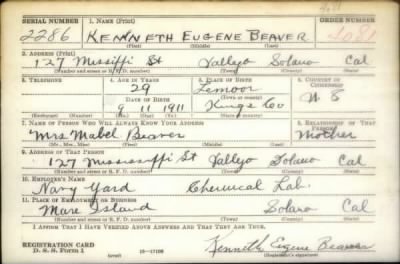 SERIAL NUMBER 1. NAME (Print) ORDER NUMBER
2286 KENNETH EUGENE BEAVER
(First) (Middle) (Last)
2. ADDRESS (Print)
127 Missiffi St Vallejo Solano Cal
(Number and street or R. F. D. number) (Town) (County) (State)
3. TELEPHONE 4. AGE IN YEARS 5. PLACE OF BIRTH 6. COUNTRY OF CITIZENSHIP
29 Lemoor
DATE OF BIRTH (Town or county)
9 11 1911 Kings Co U S
(Mo.) (Day) (Yr.) (State or country)
7. NAME OF PERSON WHO WILL ALWAYS KNOW YOUR ADDRESS 8. RELATIONSHIP OF THAT PERSON
Mrs Mabel Beaver Mother
(Mr., Mrs., Miss) (First) (Middle) (Last)
9. ADDRESS OF THAT PERSON
127 Mississiffi St Vallejo Solano Cal
(Number and street or R. F. D. number) (Town) (County) (State)
10. EMPLOYER'S NAME
Navy Yard Chemical Lab.
11. PLACE OF EMPLOYMENT OR BUSINESS
Mare Island Solano Cal
(Number and street or R. F. D. number) (Town) (County) (State)
I AFFIRM THAT I HAVE VERIFIED ABOVE ANSWERS AND THAT THEY ARE TRUE.
REGISTRATION CARD
D. S. S. Form 1 (over) Kenneth Eugene Beaver
(Registrant's signature)